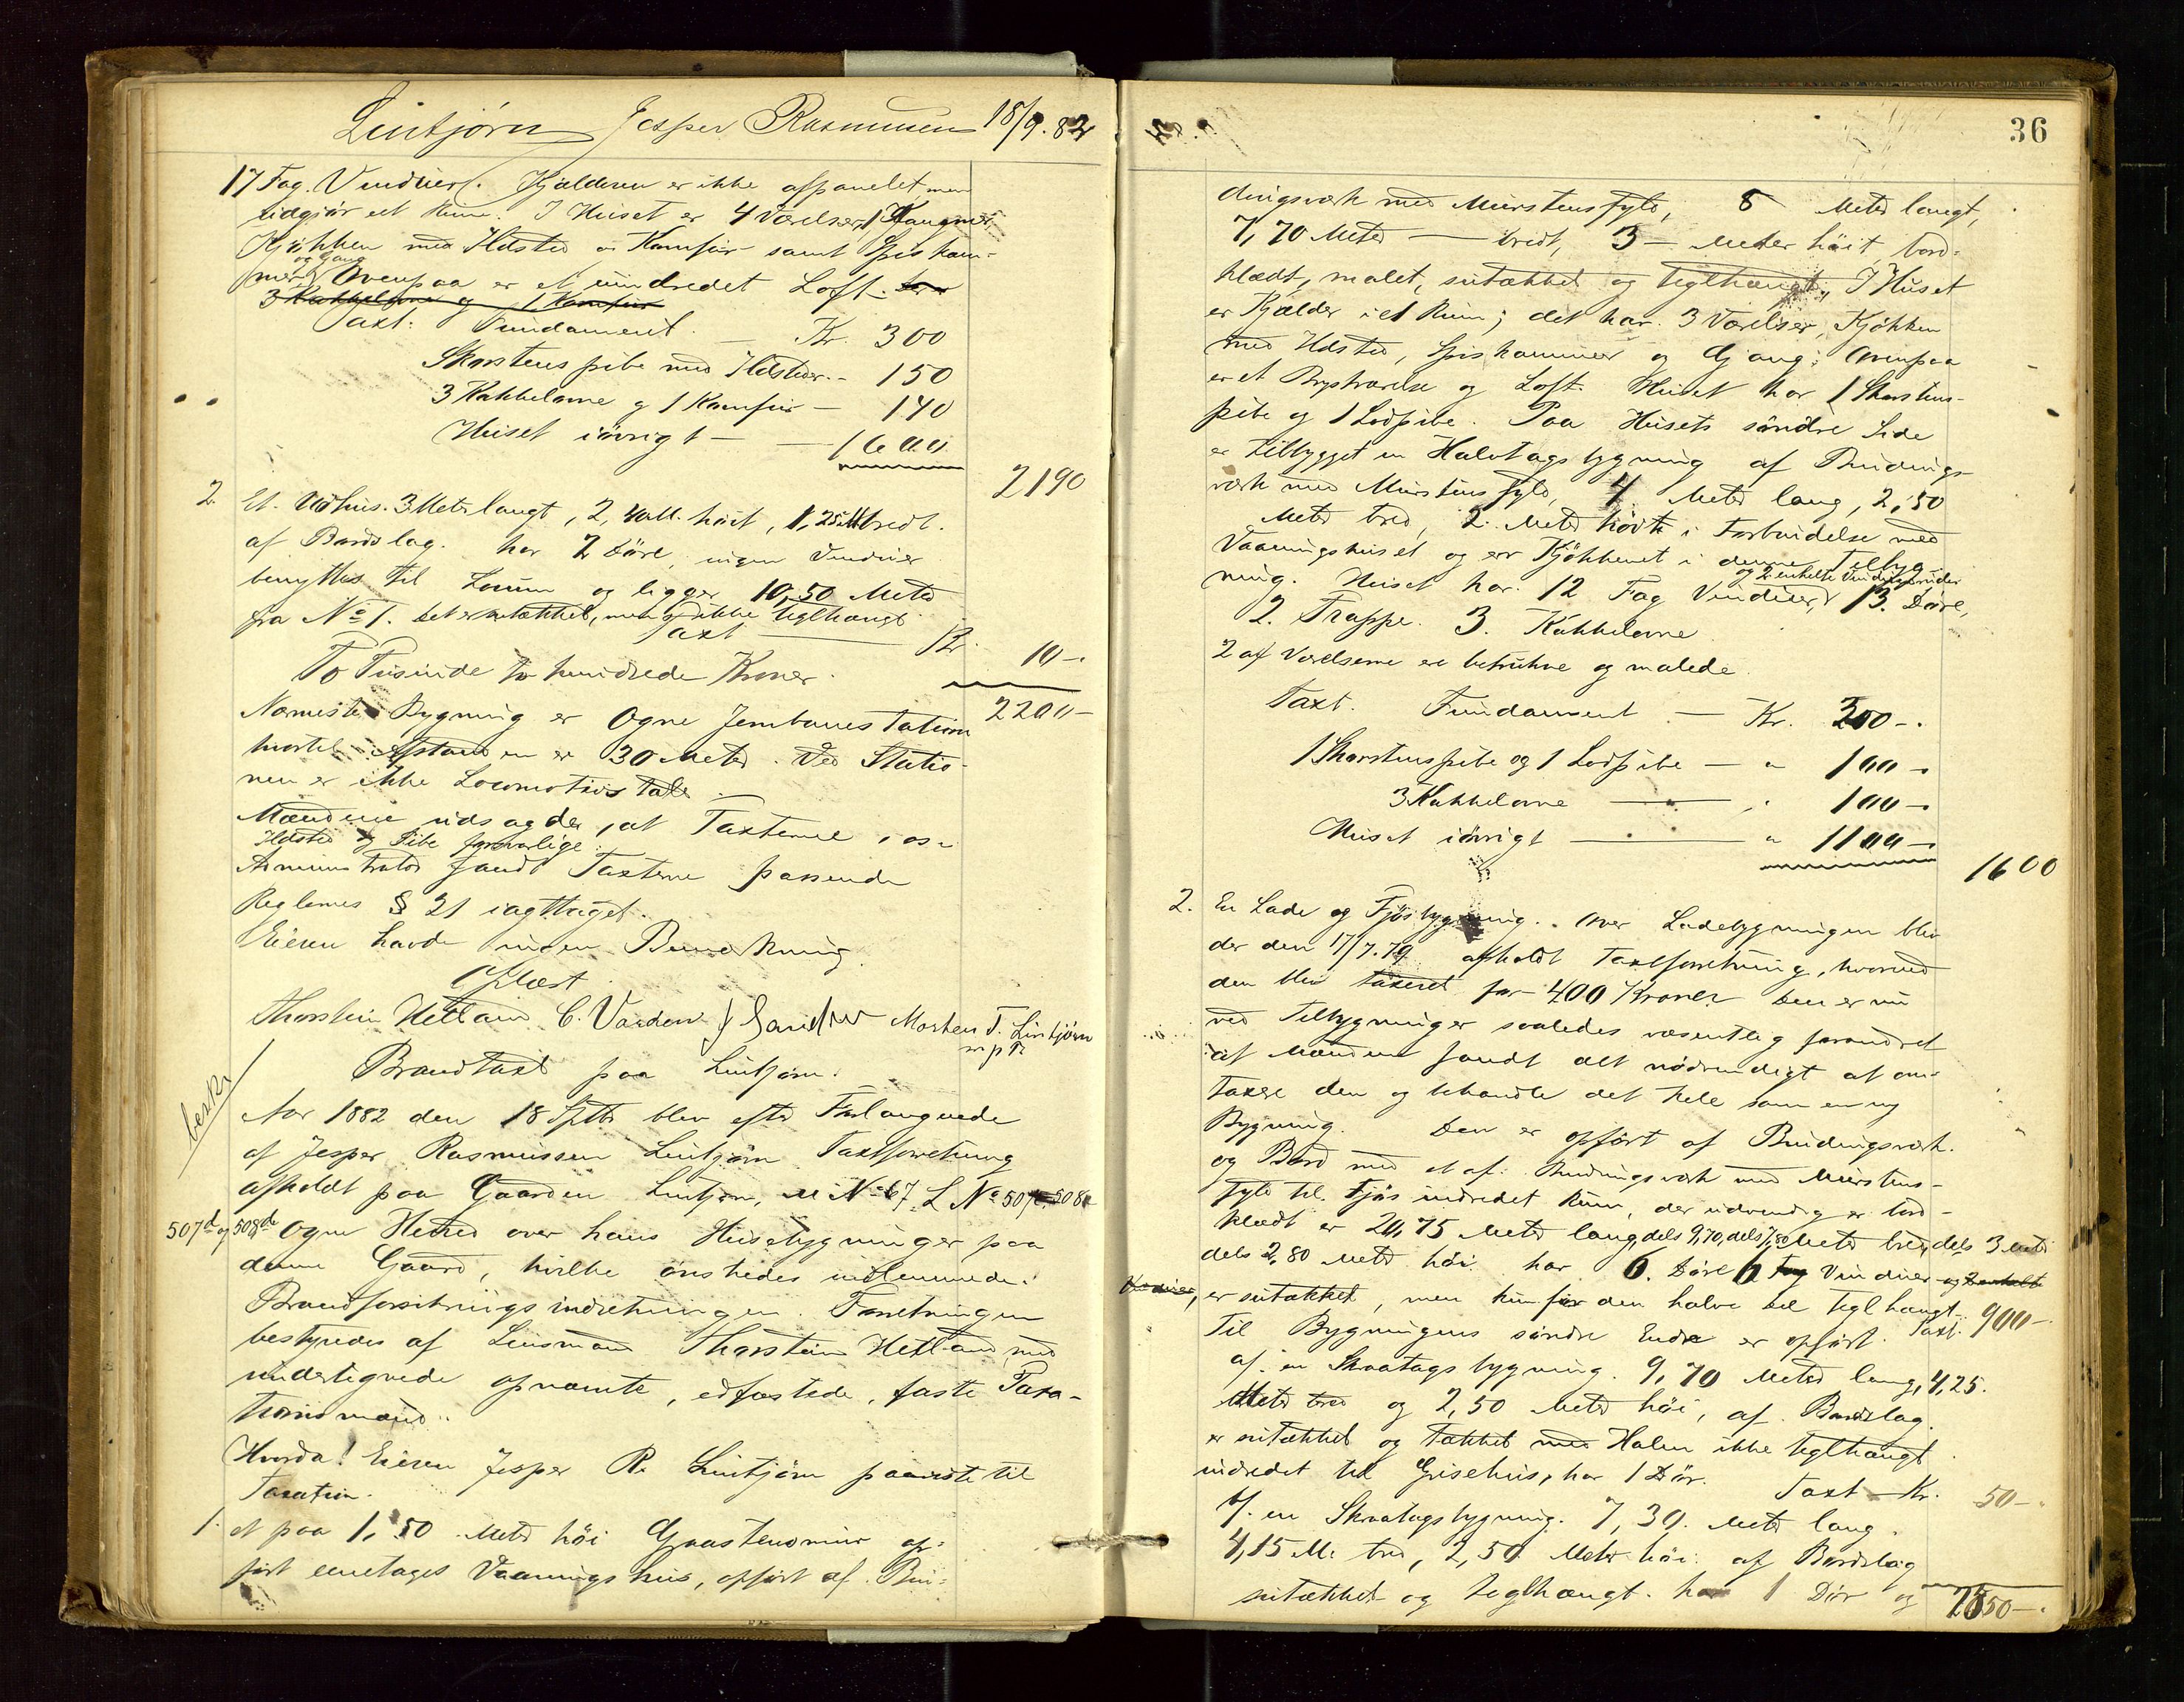 Lintjörn Jesper Rasmussen 18/9.82
17 Fag. Vinduer. Kjælderen er ikke afpanelet men
udgjör eet Rum. I Huset er 4 Værelser, 1
Kjökken med Ildsted og Komfur samt Spiskam-
mer og Gang Ovenpaa er et uindredet Loft.
3 Kakkelovne og 1 Komfur
Taxt: Fundament. — Kr. 300
Skorstenspibe med Ildsteder. - 150
3 Kakkelovne og 1 Komfur — 140
Huset iövrigt — 1600
2190
2 Et Udhus. 3 Meter langt, 2,40 M. höit, 1,25 M bredt.
af Bordslag. har 2 Döre, ingen Vinduer
benyttes til Locum og ligger 10,50 Meter
fra No 1. det er sutækket, men ikke teglhængt
Taxt — Kr. 10 -
To Tusinde to hundrede Kroner. 2200 -
Nærmeste Bygning er Ogne Jernbanestation
hvortil Afstanden er 30 Meter. Ved Statio-
nen er ikke Locomotivstald.
Mændene udsagde, at Taxterne,
Ildsted og Pibe forsvarlige.
Administrator fandt Taxterne passende
Reglernes § 21 iagttaget.
Eieren havde ingen Bemærkning.
Oplæst
Thorstein Hetland C. Varden Morten T. Lintjörn
m p P
Brandtaxt paa Lintjörn.
beskr
Aar 1882 den 18 Septbr blev efter Forlangende
af Jesper Rasmussen Lintjörn Taxtforretning
afholdt paa Gaarden Lintjörn, M No 67 L No 507 508
507d og 508d Ogne Herred over hans Husebygninger paa
denne Gaard, hvilke önskedes indlemmede i
Brandforsikringsindretningen. Forretningen
bestyredes af Lensmand Thorstein Hetland med
undertegnede opnævnte, edfæstede, faste Taxa-
tionsmænd.
Hvorda! Eieren Jesper R. Lintjörn paaviste til
Taxation.
1. et paa 1,50 Meter höi Graastensmur op-
fört eenetages Vaaningshus, opfört af Bin-
36
dingsværk med Murstensfyld, 8 Meter langt,
7,70 Meter — bredt, 3 — Meter höit, bord-
klædt, malet, sutækket og teglhængt. I Huset
er Kjælder i et Rum; det har 3 Værelser, Kjökken
med Ildsted, Spiskammer og Gang; Ovenpaa
er et Brystværelse og Loft. Huset har 1 Skorstens-
pibe og 1 Lodpibe. Paa Husets söndre Side
er tilbygget en Halvtagsbygning af Bindings-
værk med Murstensfyld, 4 Meter lang, 2,50
Meter bred, 2. Meter höi i Forbindelse med
Vaaningshuset og er Kjökkenet i denne Tilbyg-
ning. Huset har 12 Fag Vinduer, og 2 enkelte Vinduesruder 13. Döre,
2. Trappe. 3. Kakkelovne.
2 af Værelserne ere betrukne og malede.
Taxt. Fundament — Kr. 300 -.
1 Skorstenspibe og 1 Lodpibe — " 100 -
3 Kakkelovne — " 100 -
Huset iövrigt — " 1100 -
1600
2. En Lade og Fjösbygning. Over Ladebygningen blev
der den 17/7.79 afholdt Taxtforretning, hvorved
den blev taxeret for 400 Kroner Den er nu
ved Tilbygninger saaledes væsentlig forandret
at Mændene fandt det nödvendigt at om-
taxere den og behandle det hele som en ny
Bygning. Den er opfört af Bindingsværk
og Bord med et af Bindingsværk med Murstens-
fyld til Fjös indredet Rum, der udvendig er bord-
klædt er 20,75 Meter lang, dels 9,70, dels 7,80 Meter bred, dels 3 Meter
dels 2,80 Meter höi. har 6. Döre 6 Fag Vinduer og 2 enkelte
er sutækket, men kun for den halve Del teglhængt. Taxt. 900 -
Til Bygningens söndre Ende er opfört.
a/. en Skraatagsbygning. 9,70 Meter lang, 4,25.
Meter bred og 2,50 Meter höi, af Bordslag.
er sutækket og tækket med Halm ikke teglhængt
indredet til Grisehus, har 1 Dör. Taxt — Kr. 50 -
b/. en Skraatagsbygning. 7,30. Meter lang.
4,15 M. bred, 2,50 Meter höi. af Bordslag
sutækket og teglhængt. har 1 Dör og 2550 -.